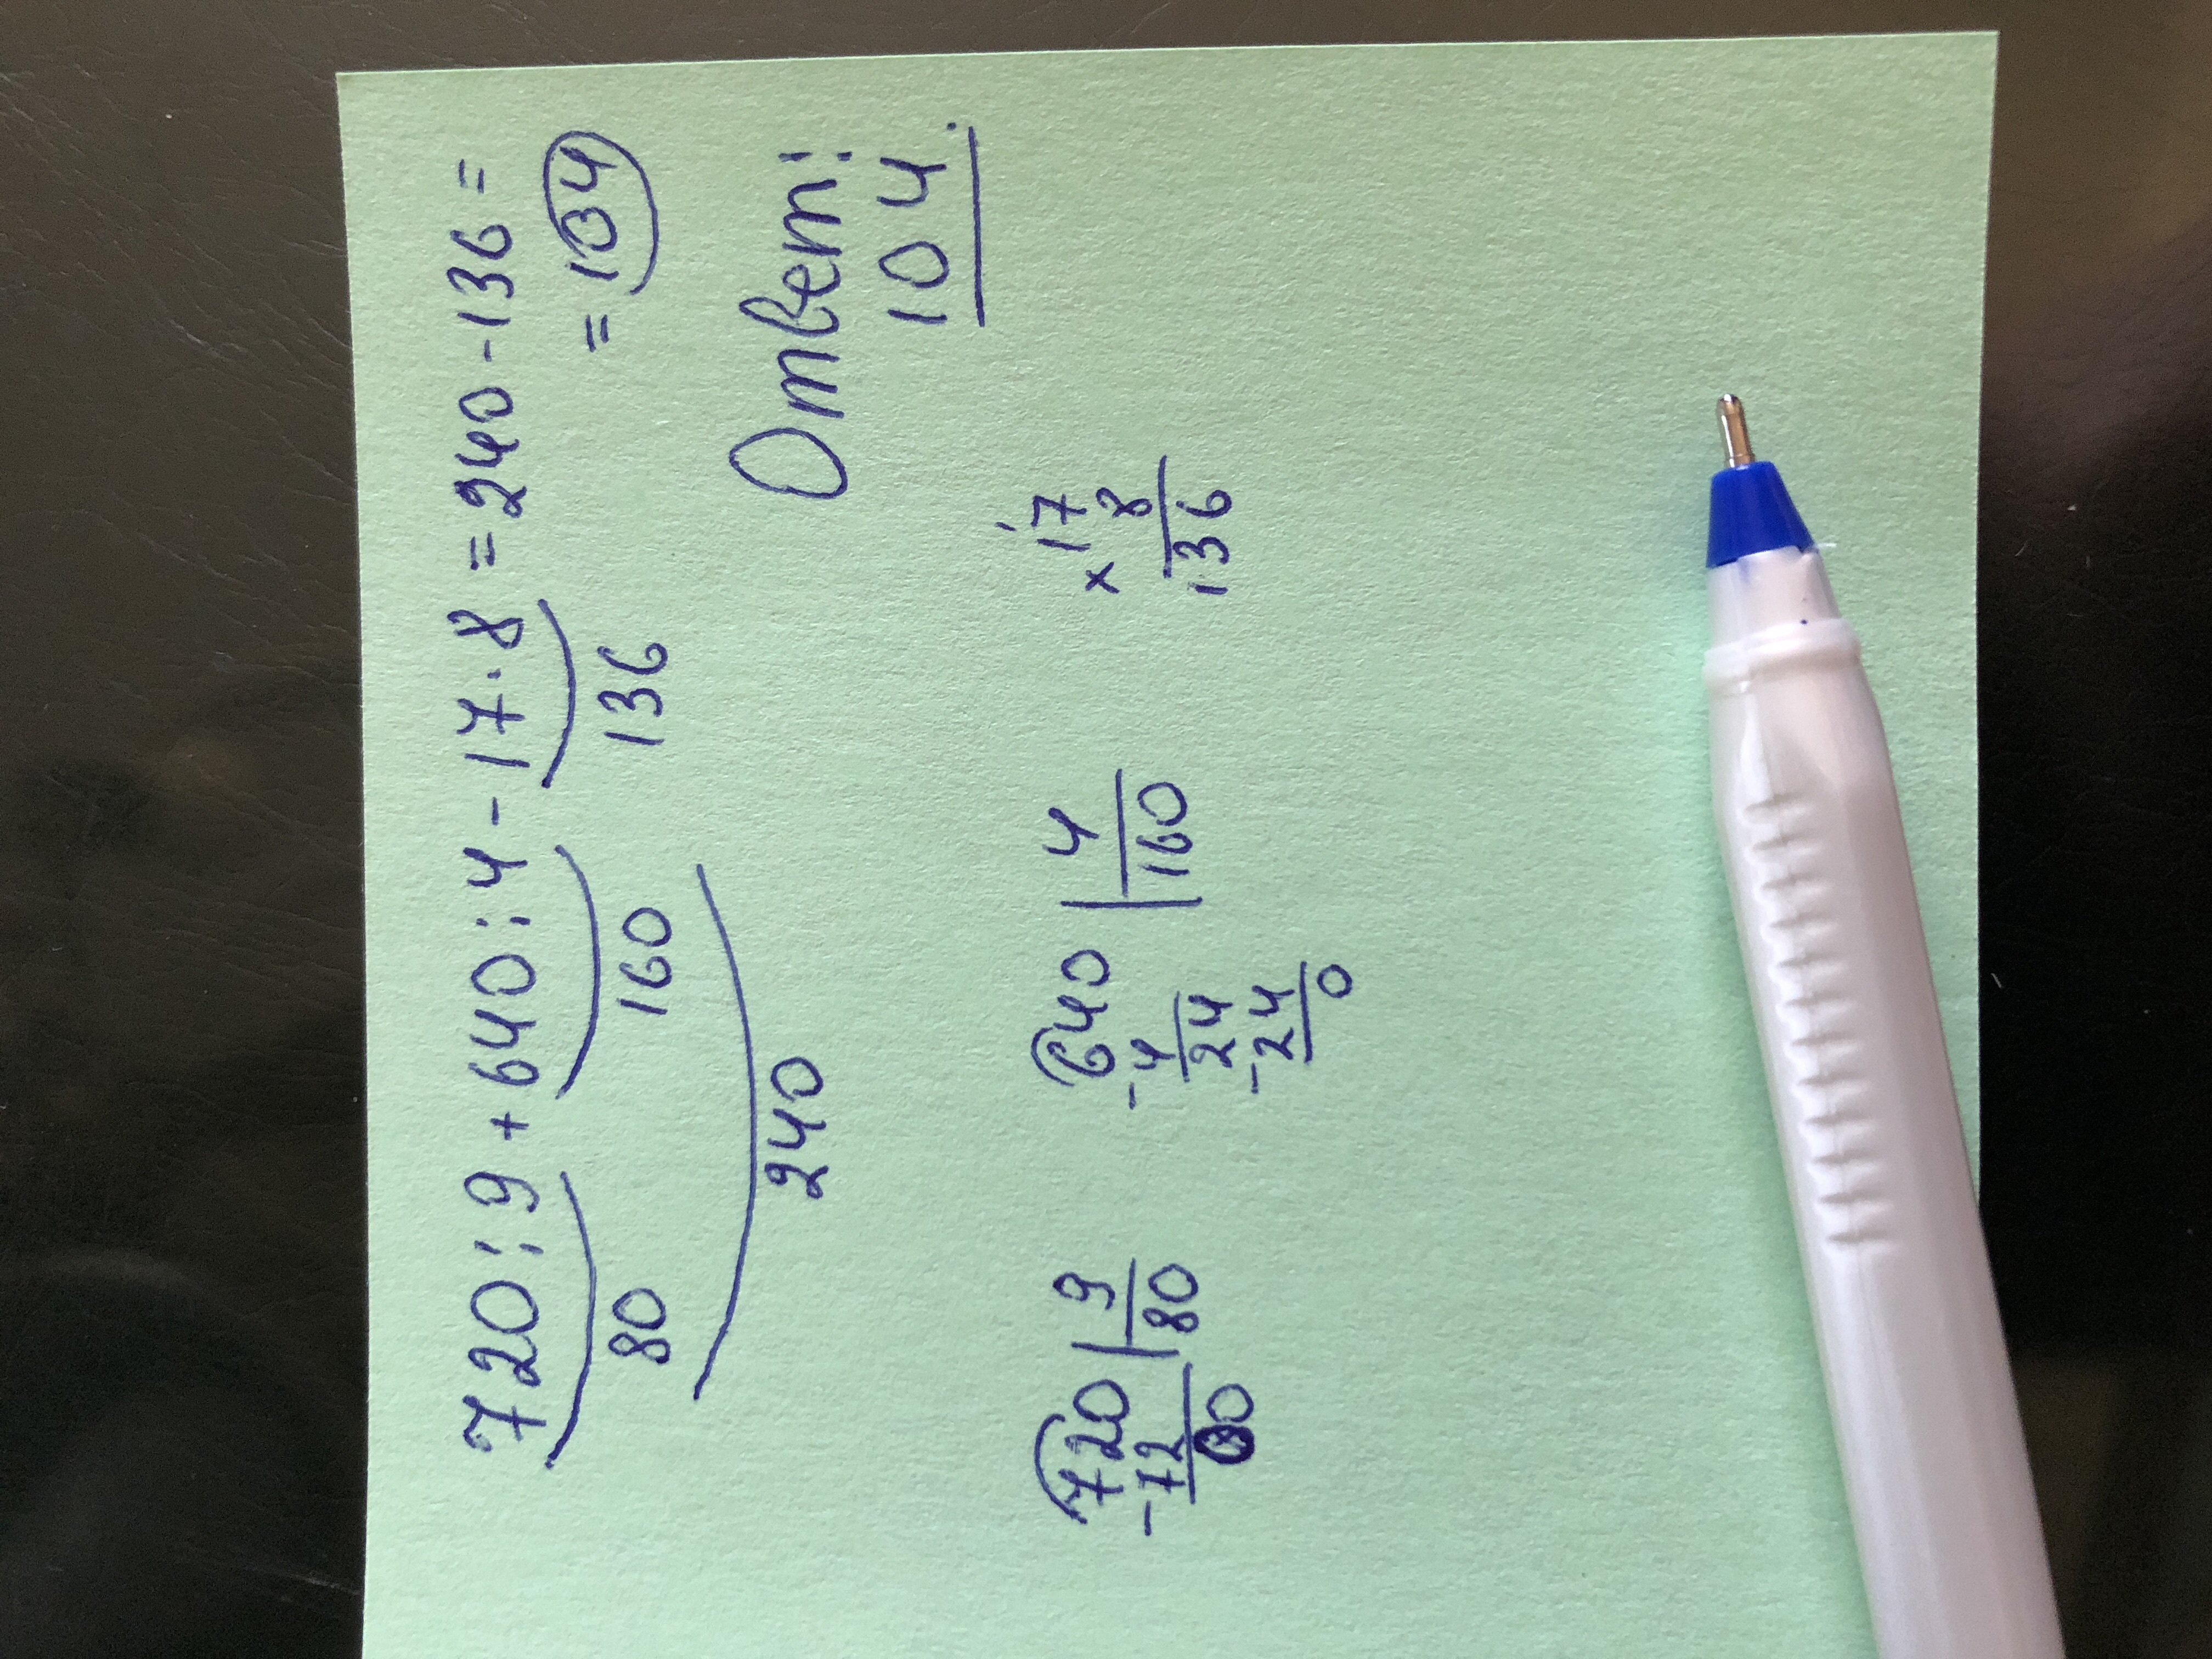 720:9+640:4-17·8=240-136=
80 160 136 =104
240
Ответ:
104.
720|9 640|4 ×17
-72 80 -4 160 8
00 24 136
-24
0